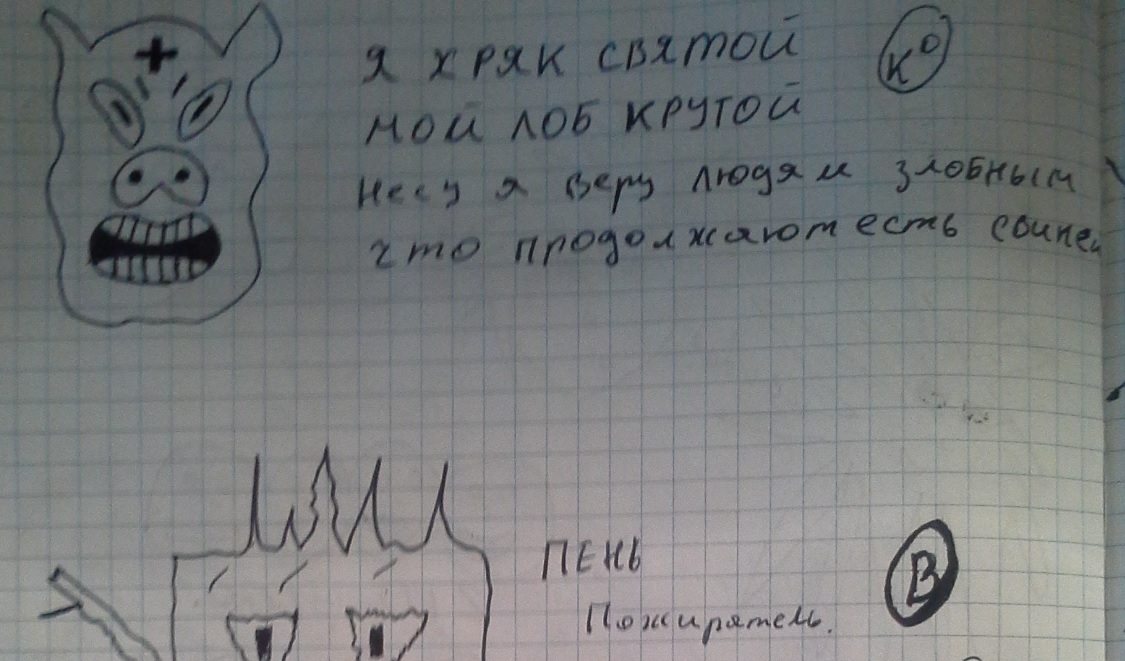 Я ХРЯК СВЯТОЙ
КО
МОЙ ЛОБ КРУТОЙ
Несу я веру людям злобным
что продолжают есть свиней
ПЕНЬ
В
Пожиратель.